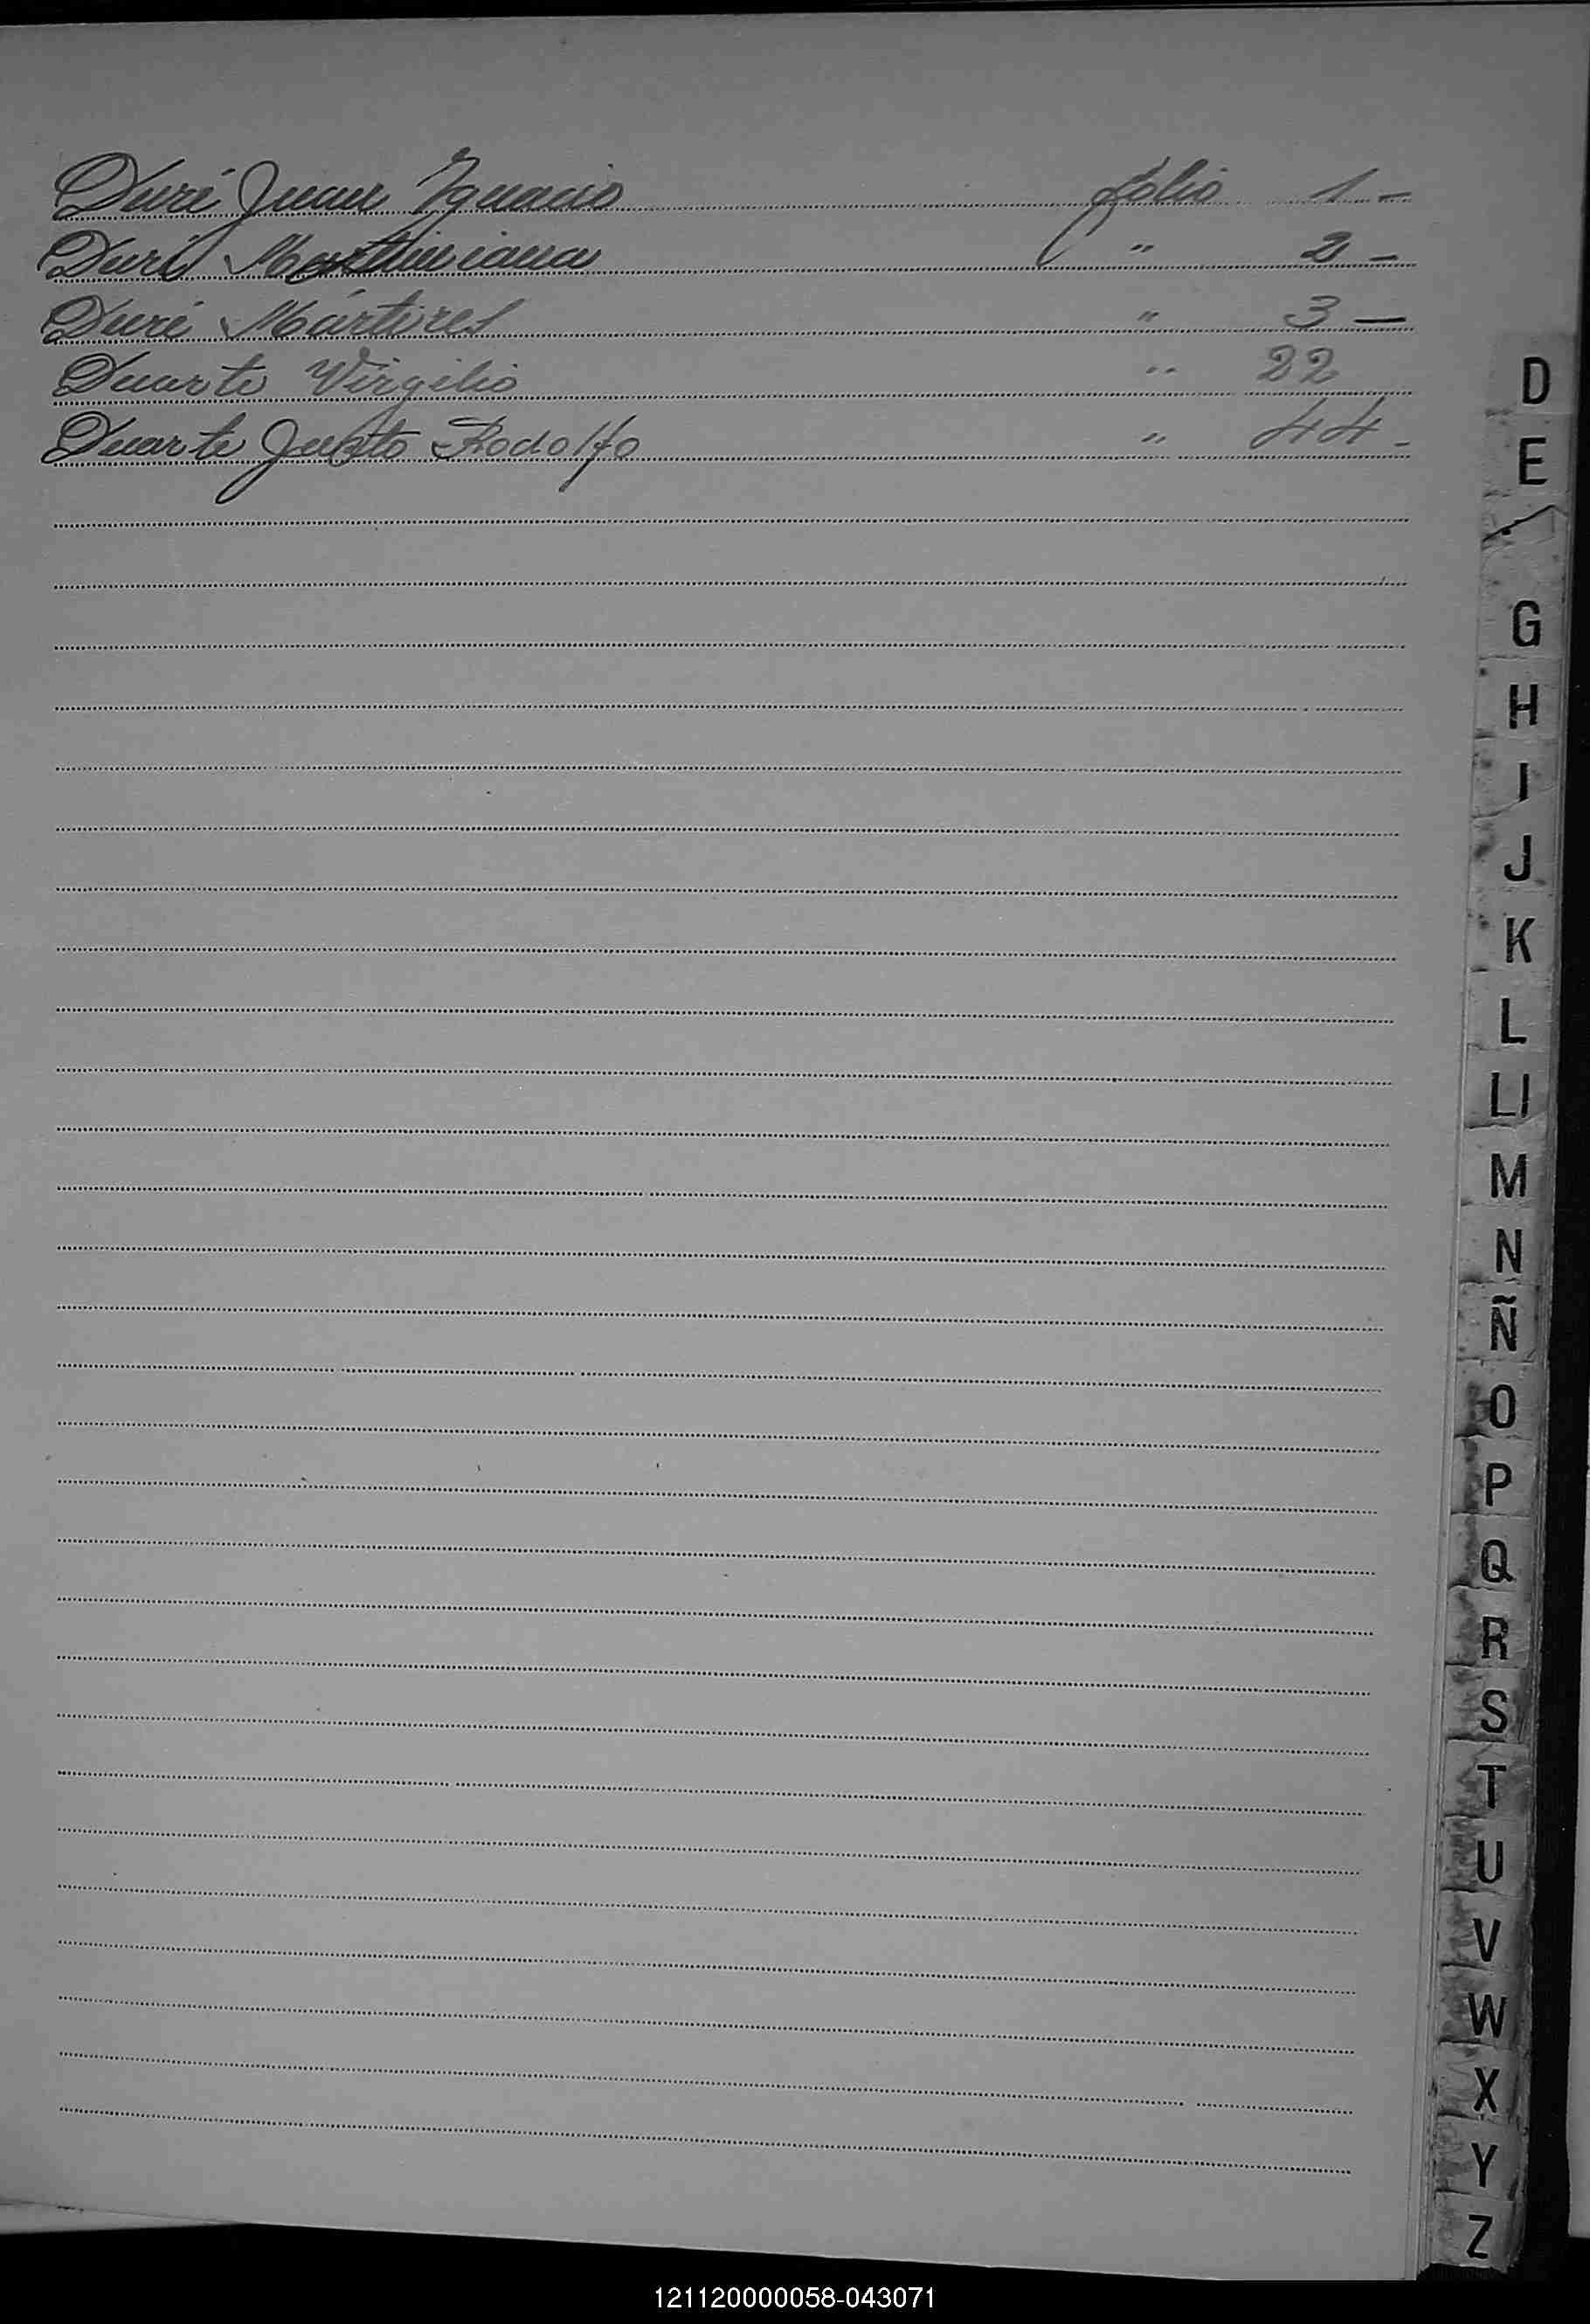 Duré Juan Ygnacio folio 1 -
Duré Martiniana " 2 -
Duré Mártires " 3 -
Duarte Virgilio " 22
Duarte Justo Rodolfo " 44 -
D
E
G
H
I
J
K
L
Ll
M
N
Ñ
O
P
Q
R
S
T
U
V
W
X
Y
Z
121120000058-043071